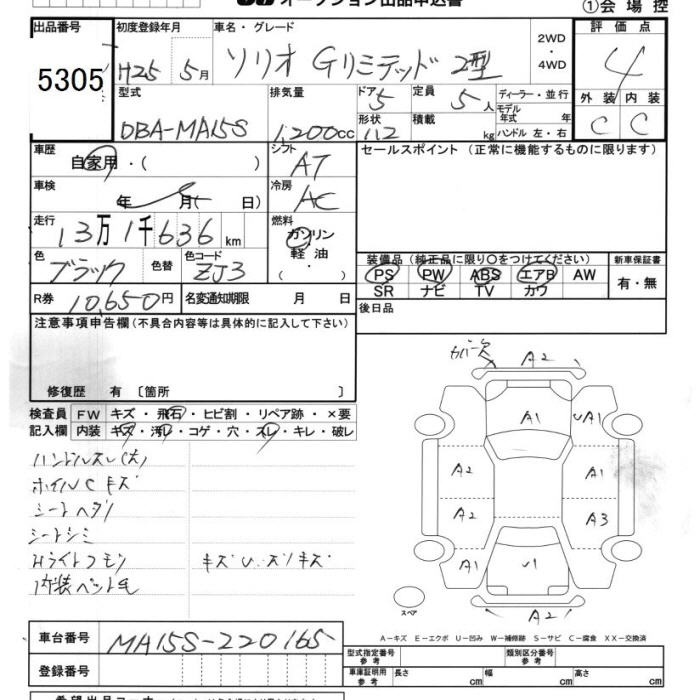 オークション出品申込書
①会場控
出品番号 初度登録年月 車名・グレード 2WD・4WD 評価点
5305 H25 5月 ソリオ Gリミテッド 2型 4
型式 排気量 ドア 5 定員 5人 ディーラー・並行 外装 内装
DBA-MA15S 1,200cc 形状 112 積載 kg モデル年式 年 ハンドル 左・右 C C
車歴 自家用・( ) シフト AT セールスポイント (正常に機能するものに限ります)
車検 年 月( 日) 冷房 AC
走行 13万1千636km 燃料 ガソリン 軽油
色 ブラック 色替 色コード ZJ3 装備品(純正品に限り○をつけてください) 新車保証書
PS PW ABS エアB AW 有・無
SR ナビ TV カワ
R券 10,650円 名変通知期限 月 日 後日品
注意事項申告欄(不具合内容等は具体的に記入して下さい)
修復歴 有 〔箇所 〕
検査員 FW キズ・飛石・ヒビ割・リペア跡・×要
記入欄 内装 キズ・汚れ・コゲ・穴・スレ・キレ・破レ
ハンドルスレ(大)
ホイルCキズ
シートヘタリ
シートシミ
Hライトクモリ キズU.スリキズ
内装ペット毛
カバー欠 A2
A1 UA1
A2 A1
A2 A3
A1 U1
スペア A2
A-キズ E-エクボ U-凹み W-補修跡 S-サビ C-腐食 XX-交換済
車台番号 MA15S-220165
型式指定番号 参考 類別区分番号 参考
登録番号 車庫証明用 参考 長さ cm 幅 cm 高さ cm
希望出品コーナー